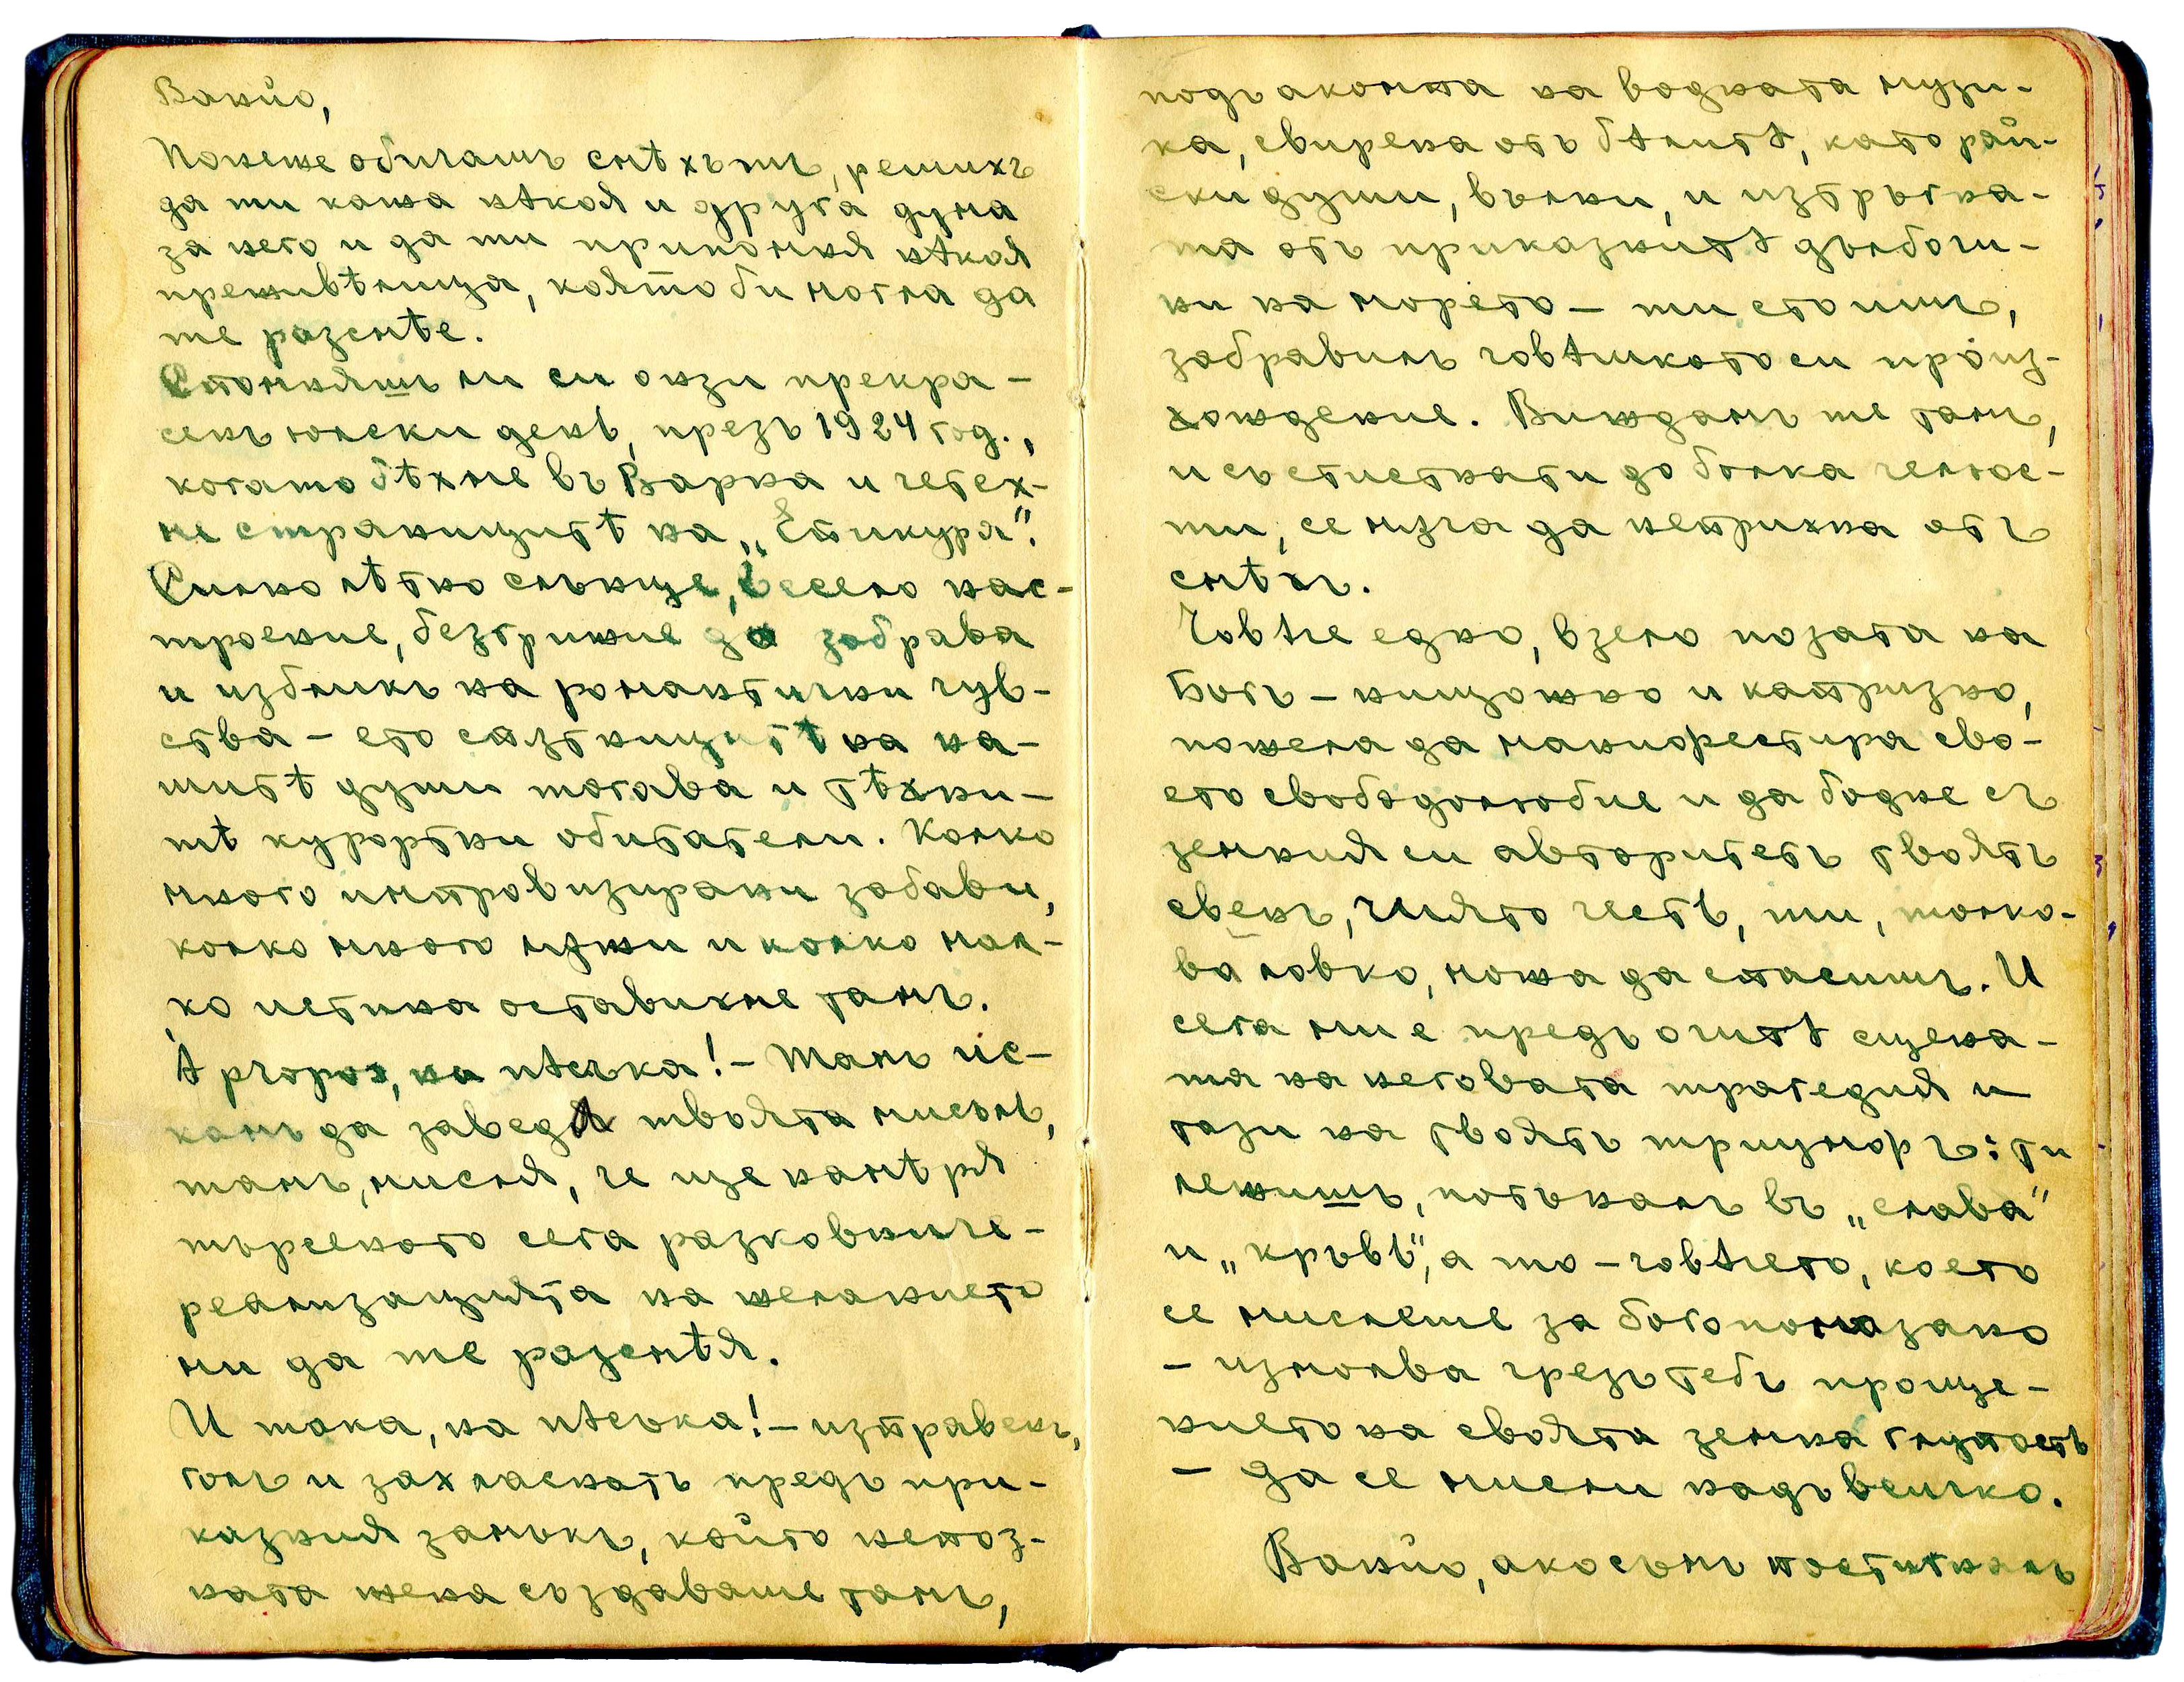 Ванйо,
Понеже обичашъ смѣхътъ, решихъ
да ти кажа нѣкоя и друга дума
за него и да ти припомня нѣкоя
преживѣлица, която би могла да
те разсмѣе.
Спомняшъ ли си онзи прекра-
сенъ юлски день, презъ 1924 год.,
когато бѣхме въ Варна и четех-
ме страницитѣ на „Епикура“.
Силно лѣтно слънце, весело нас-
троение, безгрижие до забрава
и избликъ на романтични чув-
ства – ето спѫтницитѣ на на-
шитѣ души тогава и тѣхни-
тѣ курортни обитатели. Колко
много импровизирани забави,
колко много лѫжи и колко мал-
ко истина оставихме тамъ.
A propos, на пѣсъка! – Тамъ ис-
камъ да заведа твоята мисъль,
тамъ, мисля, че ще намѣря
търсеното сега разковниче –
реализацията на желанието
ми да те разсмѣя.
И така, на пѣсъка! – изправенъ,
голъ и захласнатъ предъ при-
казния замъкъ, който непоз-
ната жена създаваше тамъ,
подъ акомпа на водната музи-
ка, свирена отъ бѣлитѣ, като рай-
ски души, вълни, и изтръгна-
та отъ приказнитѣ дълбочи-
ни на морето – ти стоишъ,
забравилъ човѣшкото си произ-
хождение. Виждамъ те тамъ,
и съ стиснати до болка челюс-
ти, се мѫча да не прихна отъ
смѣхъ.
Човѣче едно, взело позата на
Богъ – нищожно и капризно,
пожела да манифестира сво-
ето свободолюбие и да бодне съ
земния си авторитетъ твоятъ
свенъ, чиято честь, ти, толко-
ва ловко, можа да спасишъ. И
сега ми е предъ очитѣ сцена-
та на неговата трагедия и
тази на твоятъ триумфъ: ти
лежишъ, потъналъ въ „слава“
и „кръвь“, а то – човѣчето, което
се мислеше за богопомазано
– измолва чрезъ тебъ проще-
нието на своята земна глупость
– да се мисли надъ всичко.
Ванйо, ако съмъ постигналъ